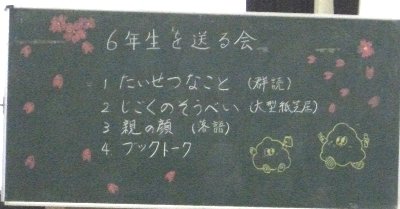 6年生を送る会
1 たいせつなこと (群読)
2 じごくのそうべい (大型紙芝居)
3 親の顔 (落語)
4 ブックトーク